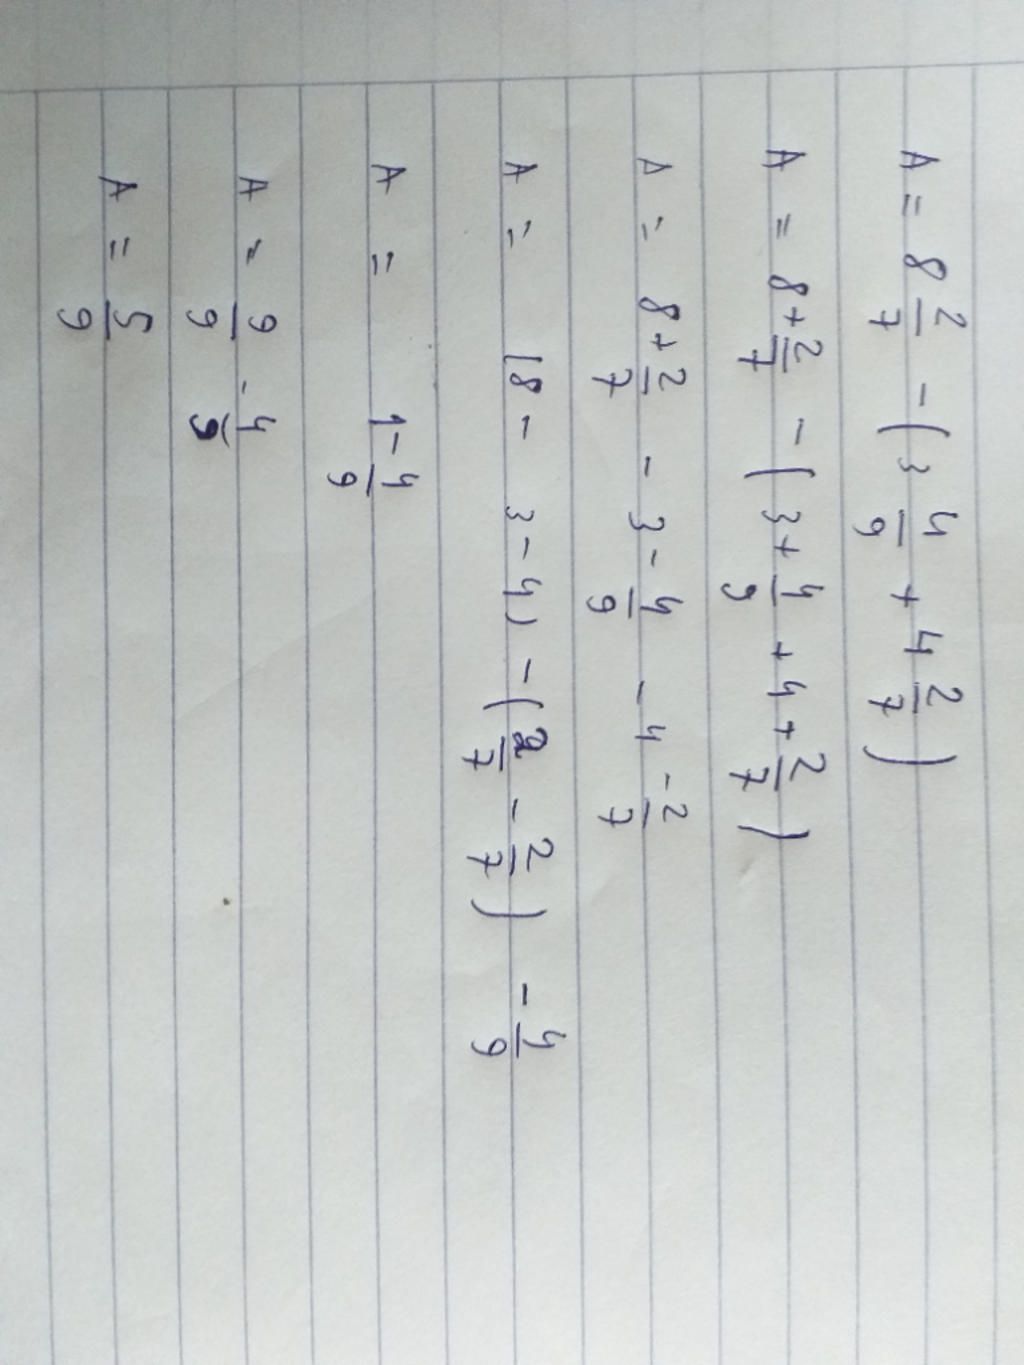 A = 8 2/7 - (3 4/9 + 4 2/7)
A = 8 + 2/7 - (3 + 4/9 + 4 + 2/7)
A = 8 + 2/7 - 3 - 4/9 - 4 - 2/7
A = (8 - 3 - 4) - (2/7 - 2/7) - 4/9
A = 1 - 4/9
A = 9/9 - 4/9
A = 5/9